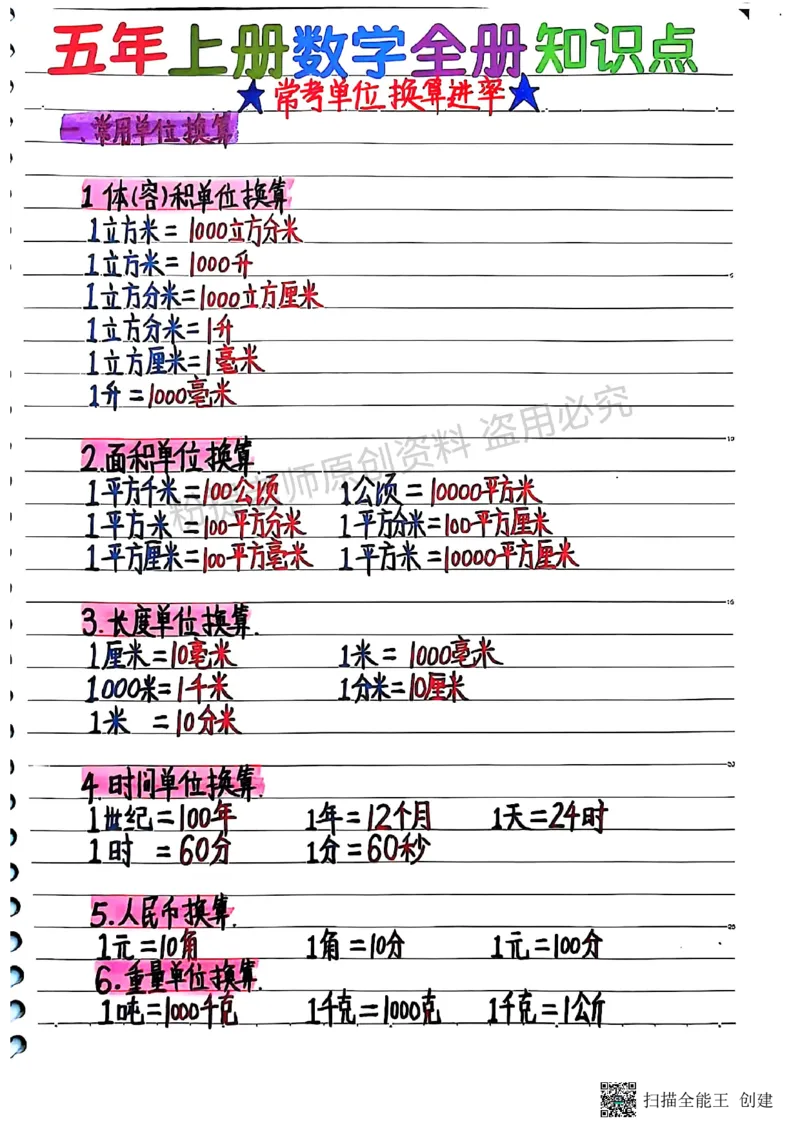 五年上册数学全册知识点
★常考单位换算进率★
一、常用单位换算
1 体(容)积单位换算
1立方米=1000立方分米
1立方米=1000升
1立方分米=1000立方厘米
1立方分米=1升
1立方厘米=1毫米
1升=1000毫米
2.面积单位换算.
1平方千米=100公顷 1公顷=10000平方米
1平方米=100平方分米 1平方分米=100平方厘米
1平方厘米=100平方毫米 1平方米=10000平方厘米
3.长度单位换算.
1厘米=10毫米 1米=1000毫米
1000米=1千米 1分米=10厘米
1米=10分米
4.时间单位换算.
1世纪=100年 1年=12个月 1天=24时
1时=60分 1分=60秒
5.人民币换算.
1元=10角 1角=10分 1元=100分
6.重量单位换算.
1吨=1000千克 1千克=1000克 1千克=1公斤
师原创资料 盗用必究
扫描全能王 创建